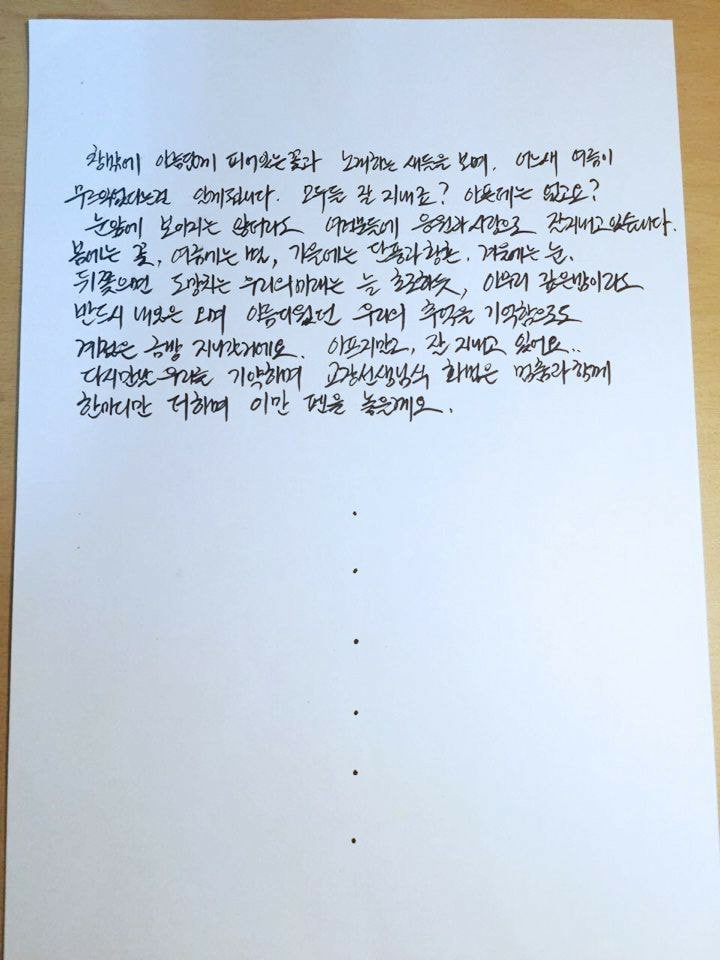 창밖에 아름답게 피어있는 꽃과 노래하는 새들을 보며, 어느새 여름이
무르익었다는걸 알게됩니다. 모두들 잘 지내죠? 아픈데는 없고요?
눈앞에 보이지는 않더라도 여러분들에 응원과 사랑으로 잘지내고있습니다.
봄에는 꽃, 여름에는 별, 가을에는 단풍과 황혼. 겨울에는 눈.
뒤쫓으면 도망치는 우리의미래는 늘 초조하듯, 아무리 깊은밤이라도
반드시 내일은 오며 아름다웠던 우리의 추억을 기억함으로도
계절은 금방 지나갈거에요. 아프지말고, 잘 지내고 있어요..
다시만날 우리를 기약하며 교장선생님식 화법은 멈춤과 함께
한마디만 더하며 이만 펜을 놓을게요.